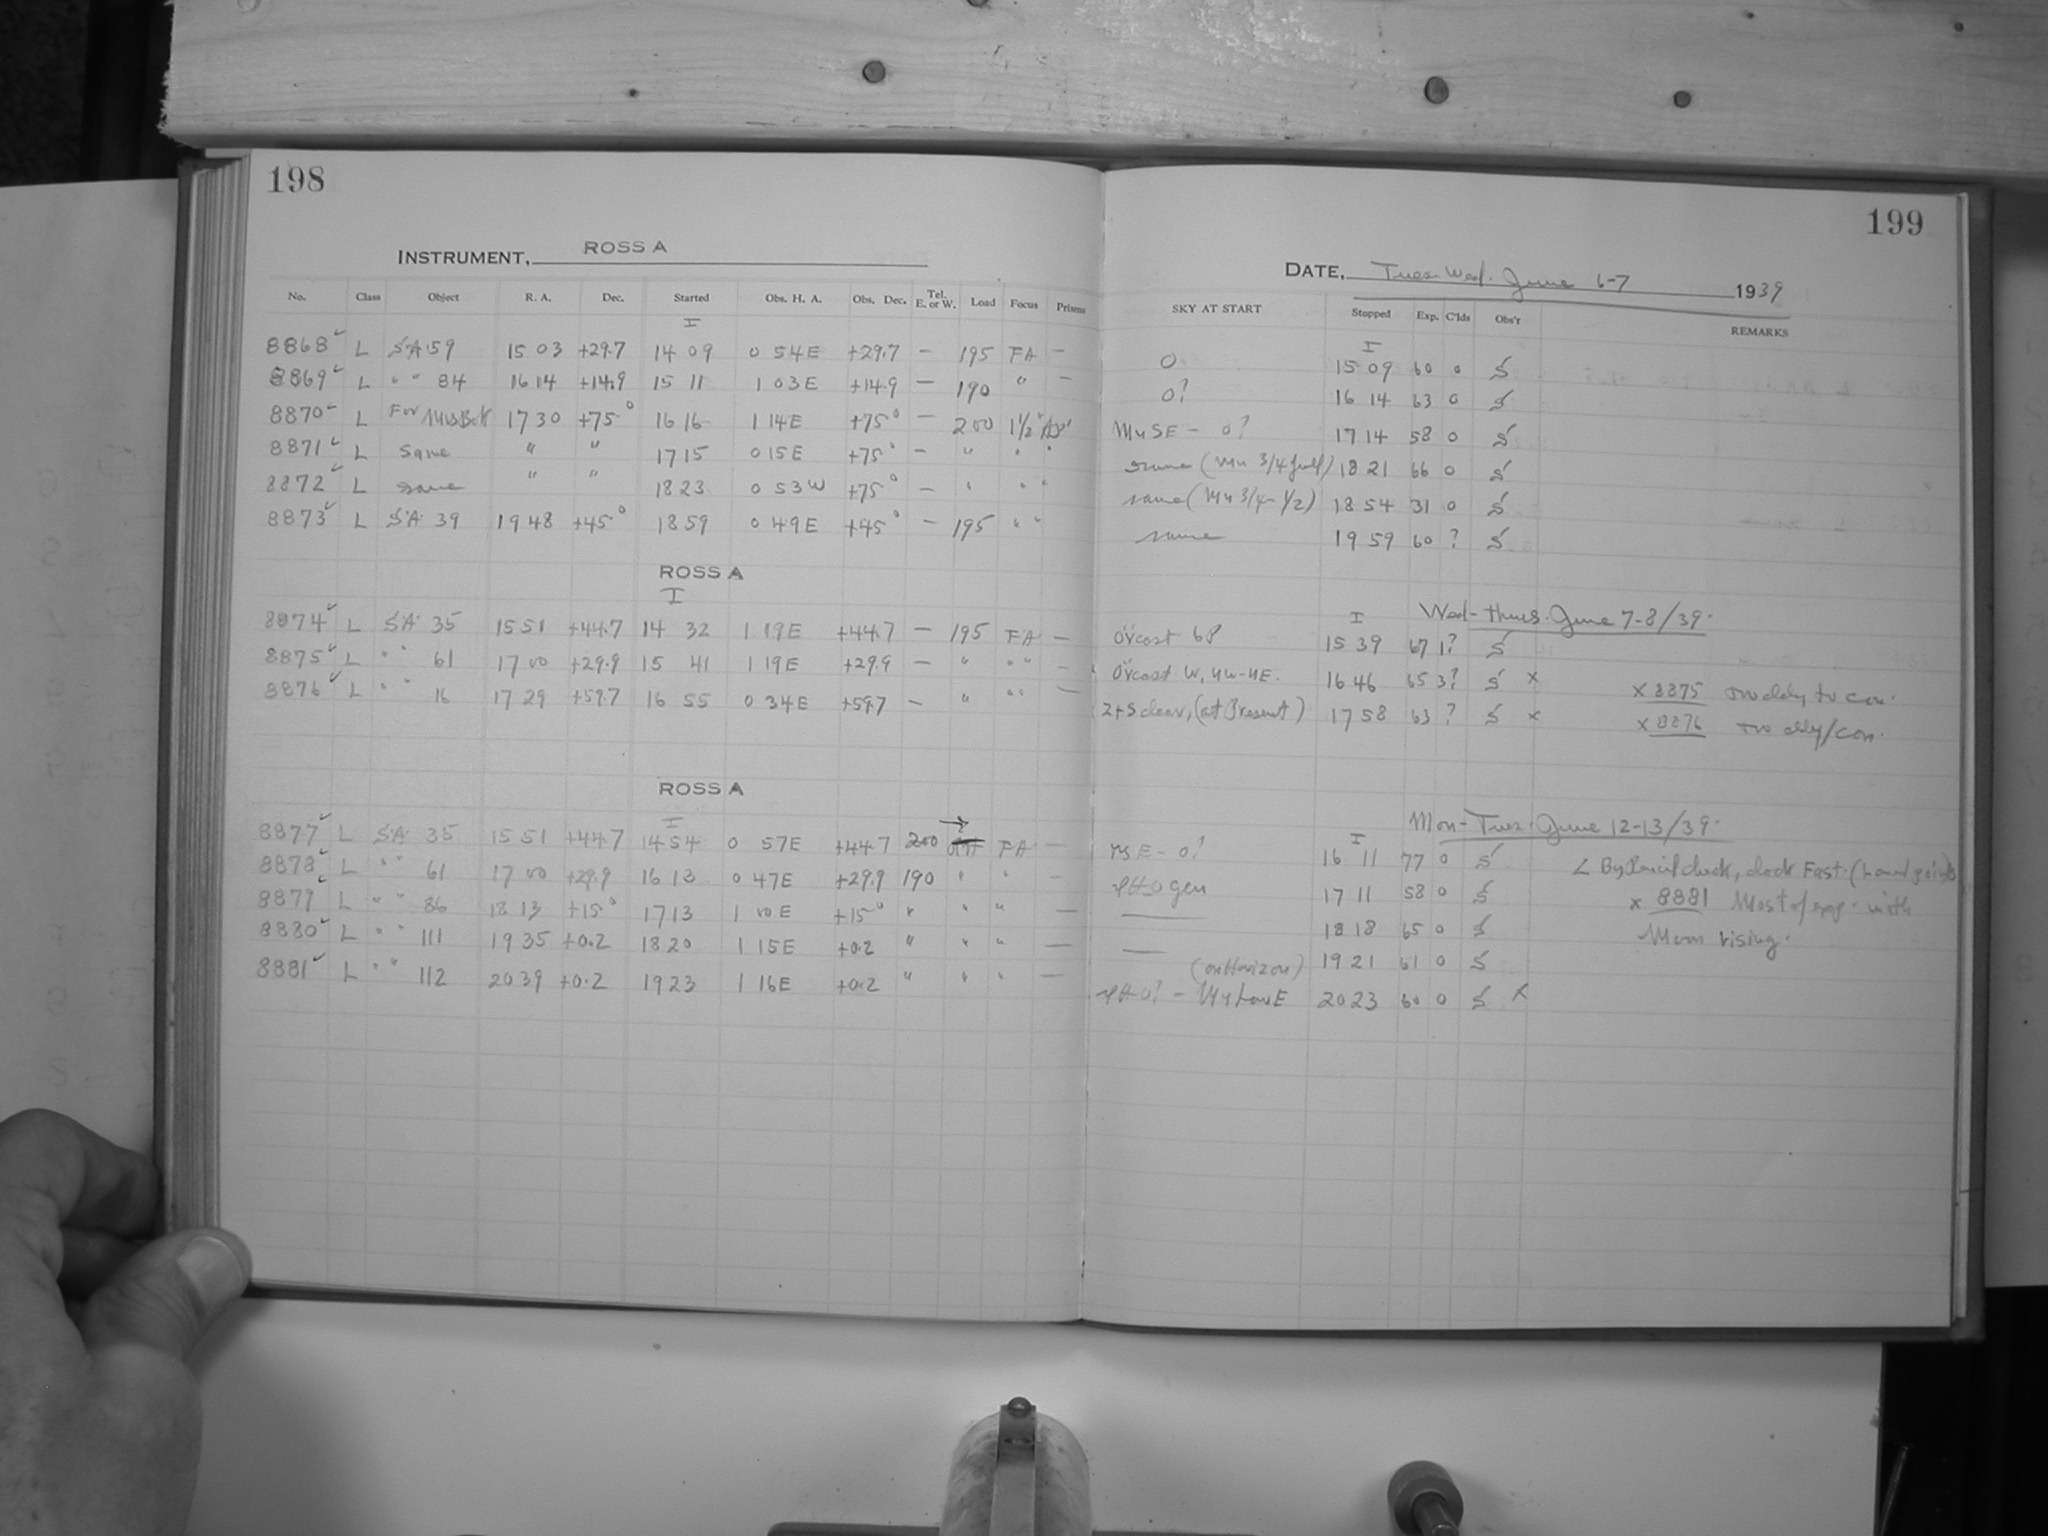 198
INSTRUMENT, ROSS A
No. Class Object R. A. Dec. Started Obs. H. A. Obs. Dec. Tel. E. or W. Load Focus Prisms
I
8868 ✓ L SA 59 15 03 +29.7 14 09 0 54E +29.7 — 195 FA —
8869 ✓ L " " 84 16 14 +14.9 15 11 1 03E +14.9 — 190 " —
8870 ✓ L For Miss Bok 17 30 +75° 16 16 1 14E +75° — 200 1½"
8871 ✓ L Same " " 17 15 0 15E +75° — " " "
8872 ✓ L same " " 18 23 0 53W +75° — " " "
8873 ✓ L SA 39 19 48 +45° 18 59 0 49E +45° — 195 " "
ROSS A
I
8874 ✓ L SA 35 15 51 +44.7 14 32 1 19E +44.7 — 195 FA —
8875 ✓ L " " 61 17 00 +29.9 15 41 1 19E +29.9 — " " " —
8876 ✓ L " " 16 17 29 +59.7 16 55 0 34E +59.7 — " " " —
ROSS A
I
8877 ✓ L SA 35 15 51 +44.7 14 54 0 57E +44.7 200 → FA —
8878 ✓ L " " 61 17 00 +29.9 16 13 0 47E +29.9 190 " " —
8879 ✓ L " " 86 18 13 +15° 17 13 1 00E +15° " " " —
8880 ✓ L " " 111 19 35 +0.2 18 20 1 15E +0.2 " " " —
8881 ✓ L " " 112 20 39 +0.2 19 23 1 16E +0.2 " " " —
199
DATE, Tues-Wed. June 6-7 1939
SKY AT START Stopped Exp. C'lds Obs'r REMARKS
I
0 15 09 60 0 S
0? 16 14 63 0 S
Mn SE – 0? 17 14 58 0 S
same (Mn 3/4 full) 18 21 66 0 S
same (Mn 3/4–1/2) 18 54 31 0 S
same 19 59 60 ? S
I Wed-Thurs. June 7-8/39.
Ov'cast 15 39 67 1? S
Ov'cast W, NW-NE. 16 46 65 3? S x x 8875
Z+S clear, (at Present) 17 58 63 ? S x x 8876
Mon-Tues. June 12-13/39.
I
E – 0? 16 11 77 0 S clock, clock Fast.
gen 17 11 58 0 S x 8881 Most of exp. with
— 18 18 65 0 S Moon rising.
— 19 21 61 0 S
(on Horizon)
0? – Mn Low E 20 23 60 0 S x